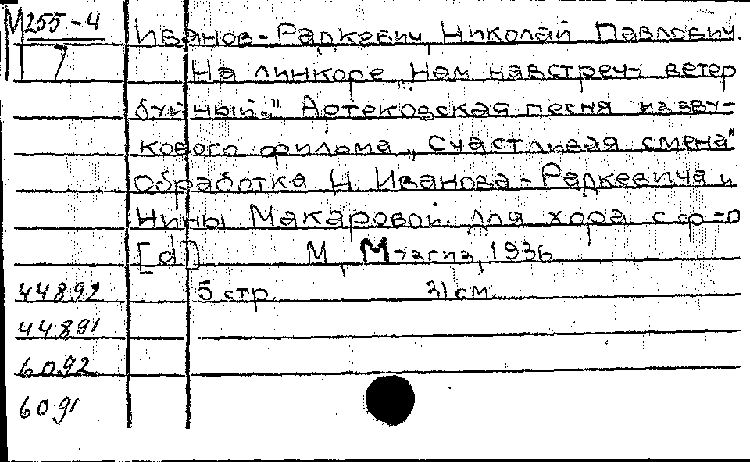 М255-4
7
Иванов-Радкевич, Николай Павлович.
На линкоре „Нам навстречу ветер
буйный..." Артековская песня из зву-
кового фильма „Счастливая смена"
Обработка Н. Иванова-Радкевича и
Нины Макаровой. Для хора с ф-п
[d] М., Музгиз, 1936
44892 5 стр. 31 см.
44891
6092
6091